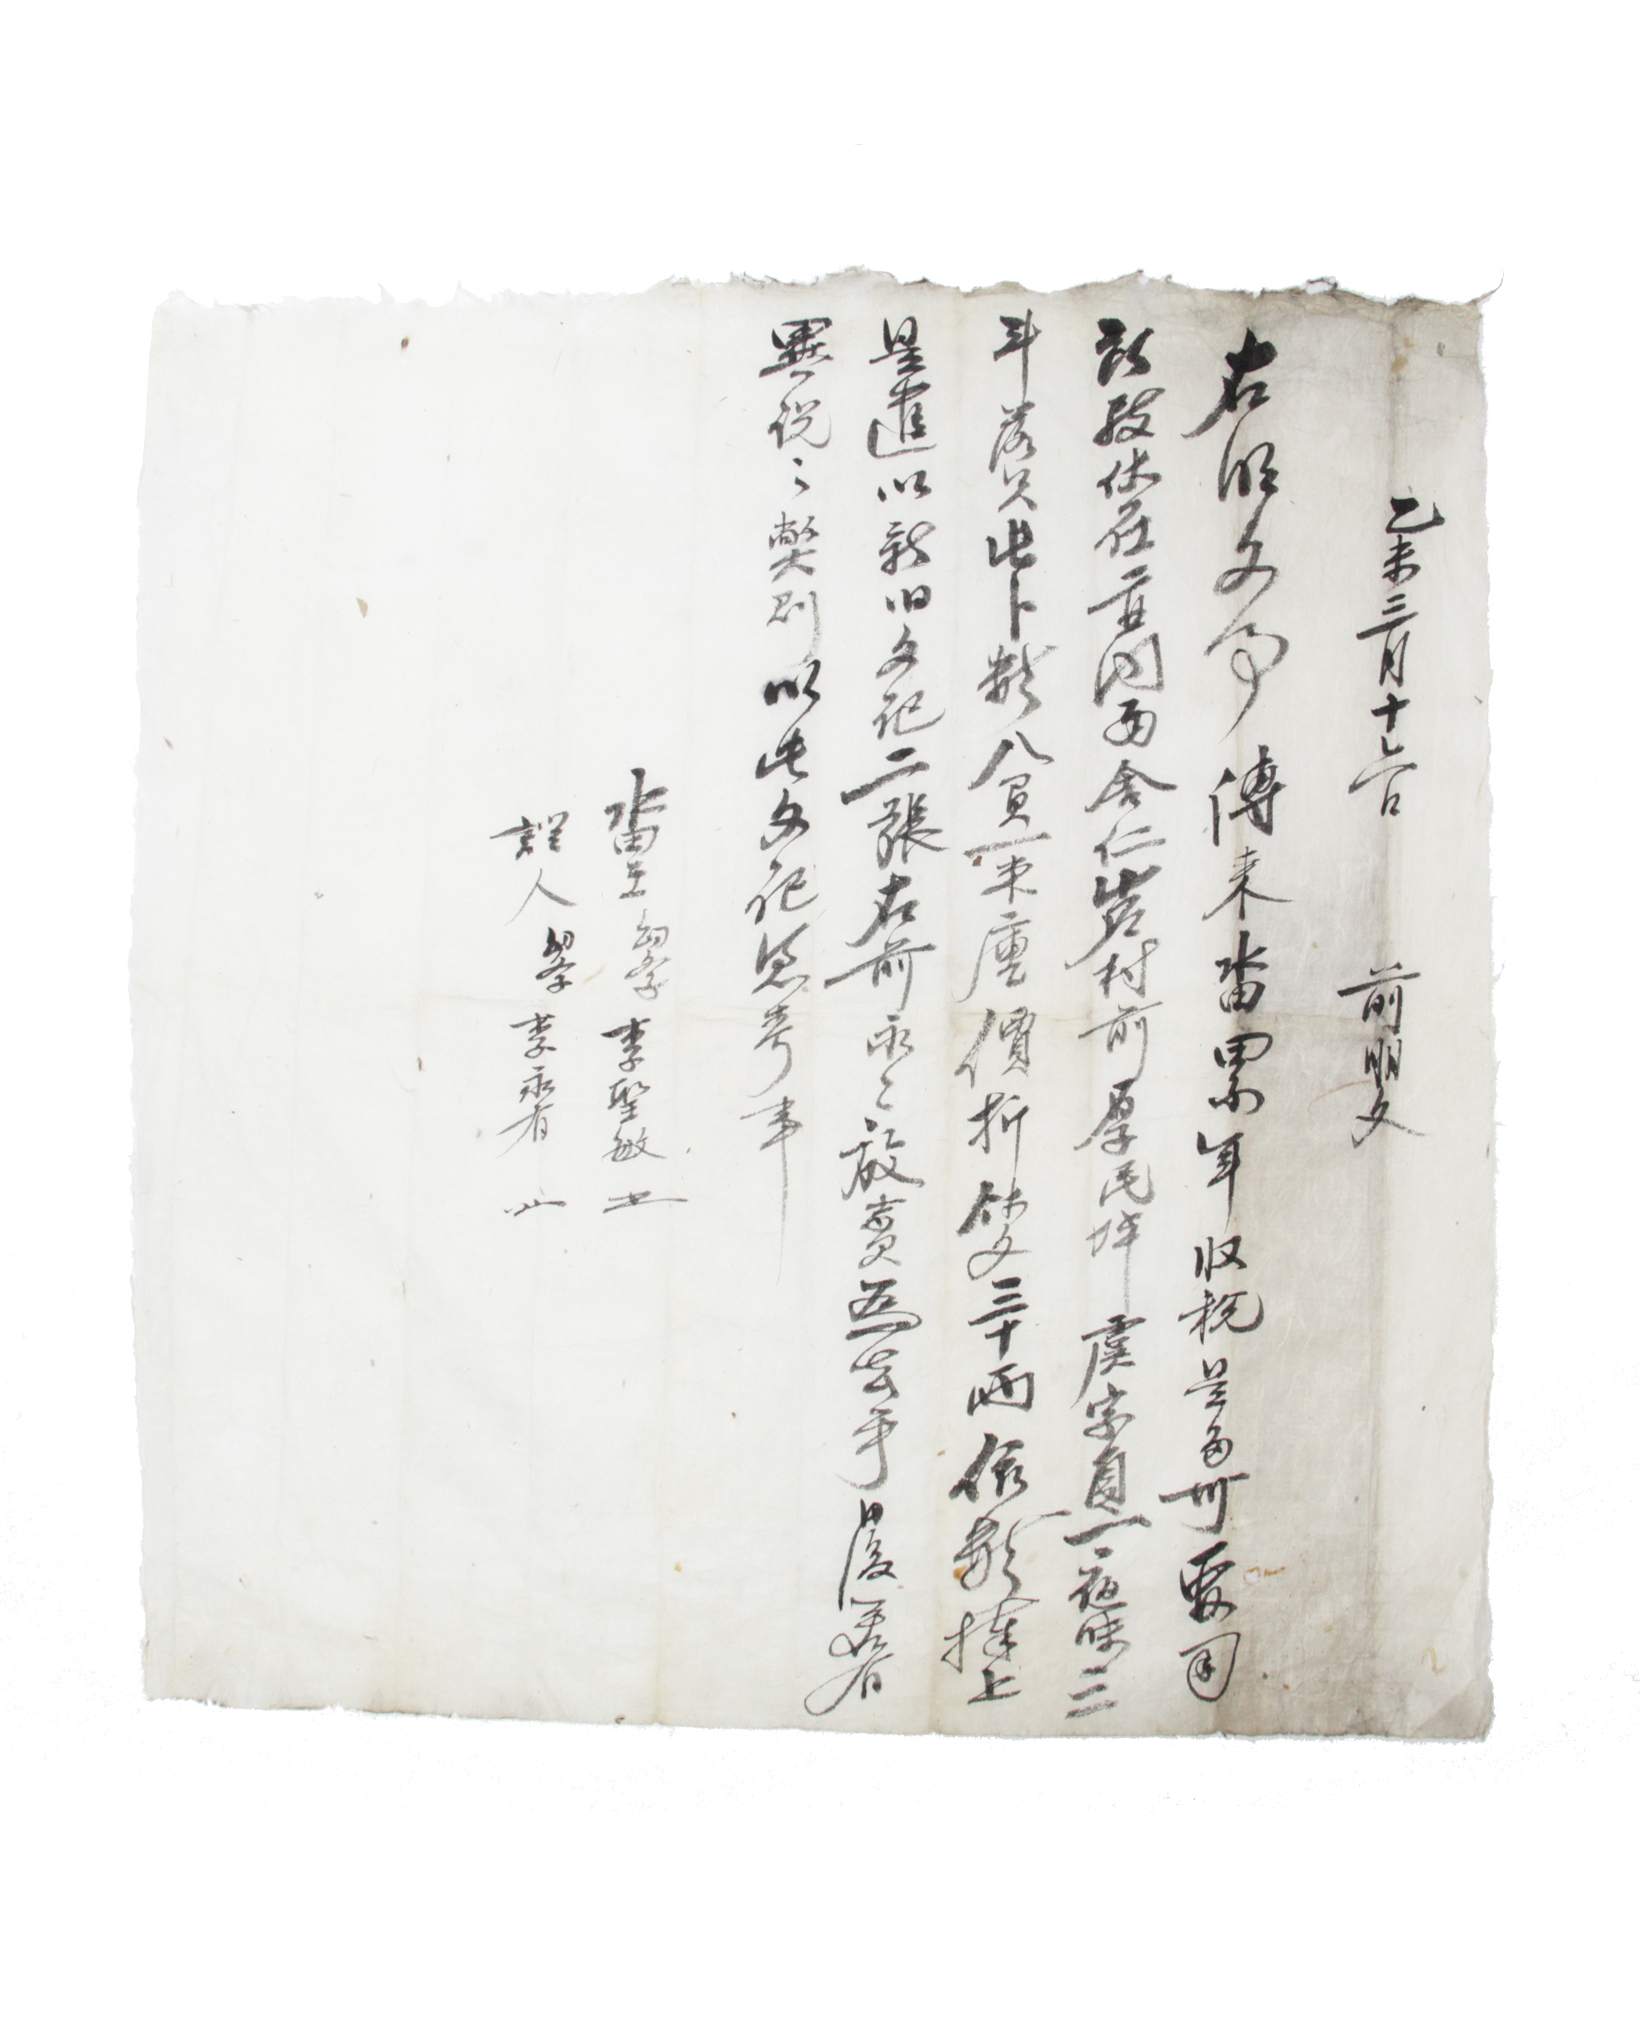 乙未三月十六日 前明文
右明文事 傳來畓累年收稅是多可 要用
所致 伏在 內面舍仁岩村前厚民坪 虞字員一夜味三
斗落只 㐣卜數八負一束廑 價折錢文三十兩 依數捧上
是遣 以新旧文記二張 右前永〻放賣爲去乎 日後若有
異說之弊則 以此文記憑考事
畓主 幼學 李聖敏
證人 幼學 李永春